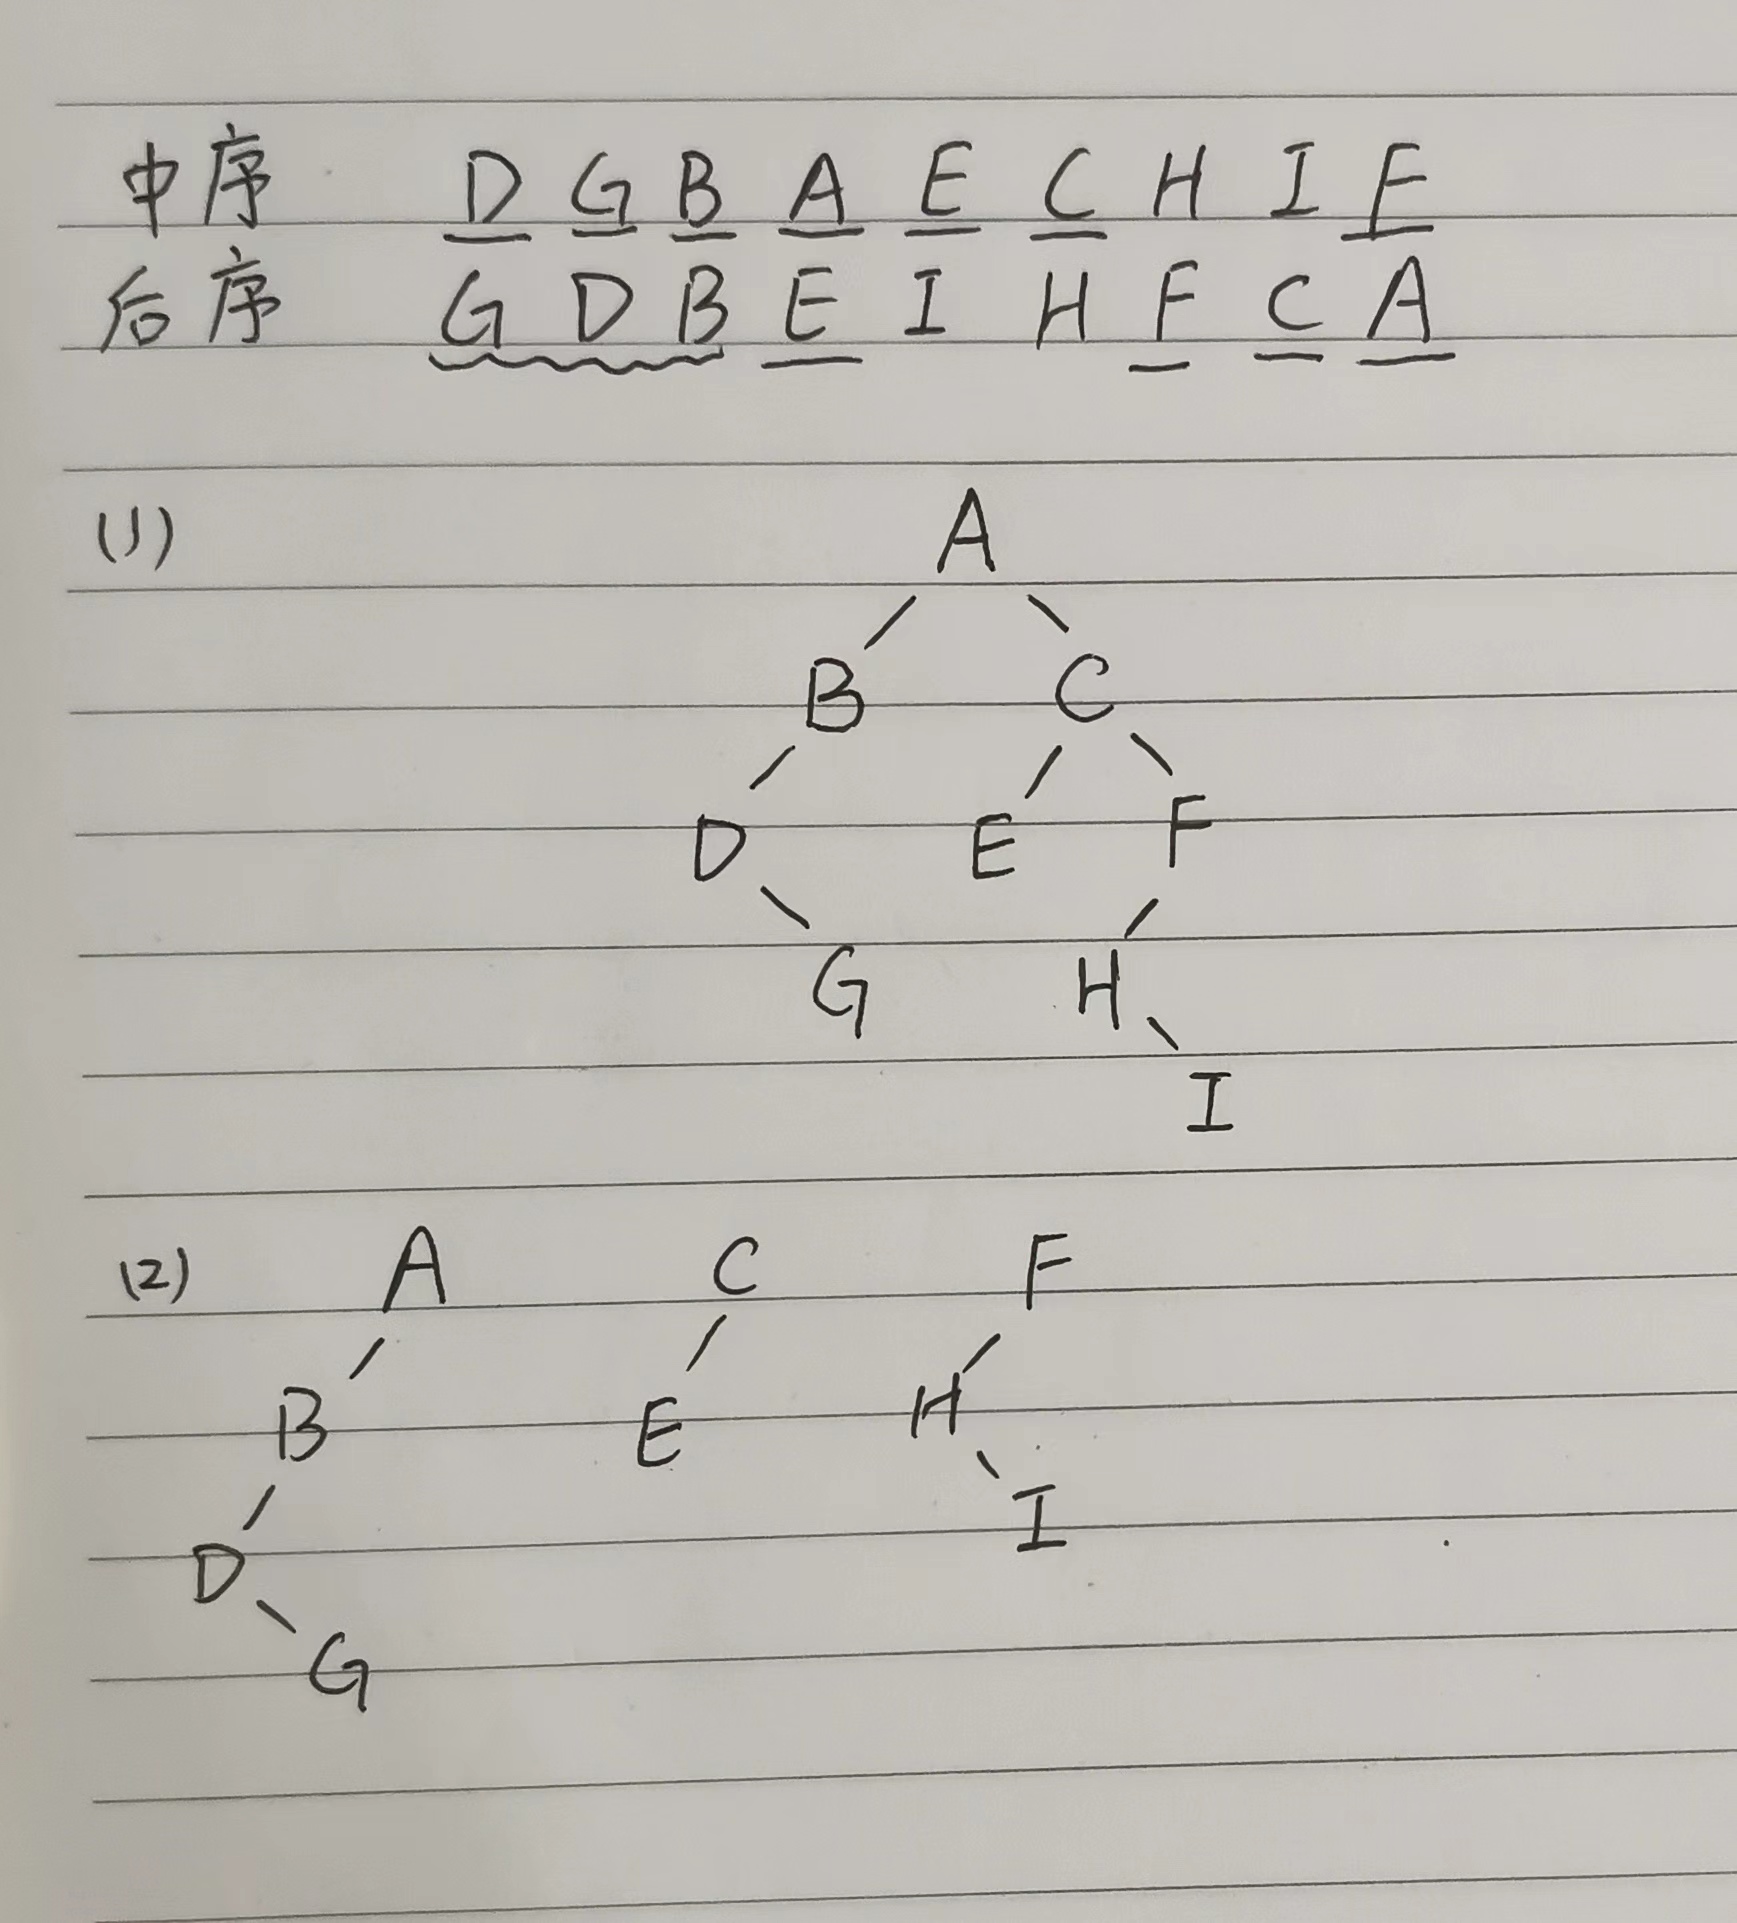 中序 D G B A E C H I F
后序 G D B E I H F C A
(1)
A
B C
D E F
G H
I
(2) A C F
B E H
D I
G